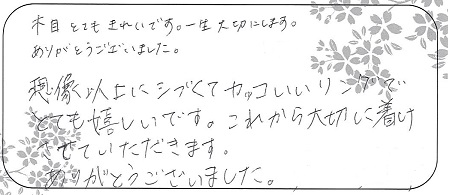 木目とてもきれいです。一生大切にします。
ありがとうございました。
想像以上にシブくてカッコいいリングで
とても嬉しいです。これから大切に着け
させていただきます。
ありがとうございました。